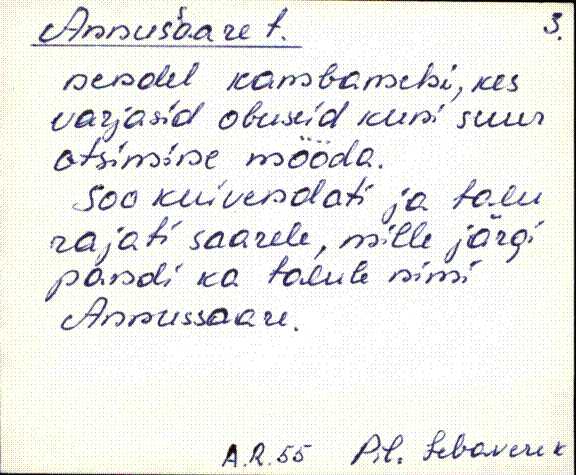 Annusaare t. 3.
nendel kambamehi, kes
varjasid obuseid kuni suur
otsimine mööda.
Soo kuivendati ja talu
rajati saarele, mille järgi
pandi ka talule nimi
Annussaare.
A.R. 55 Pil. Lebaverek